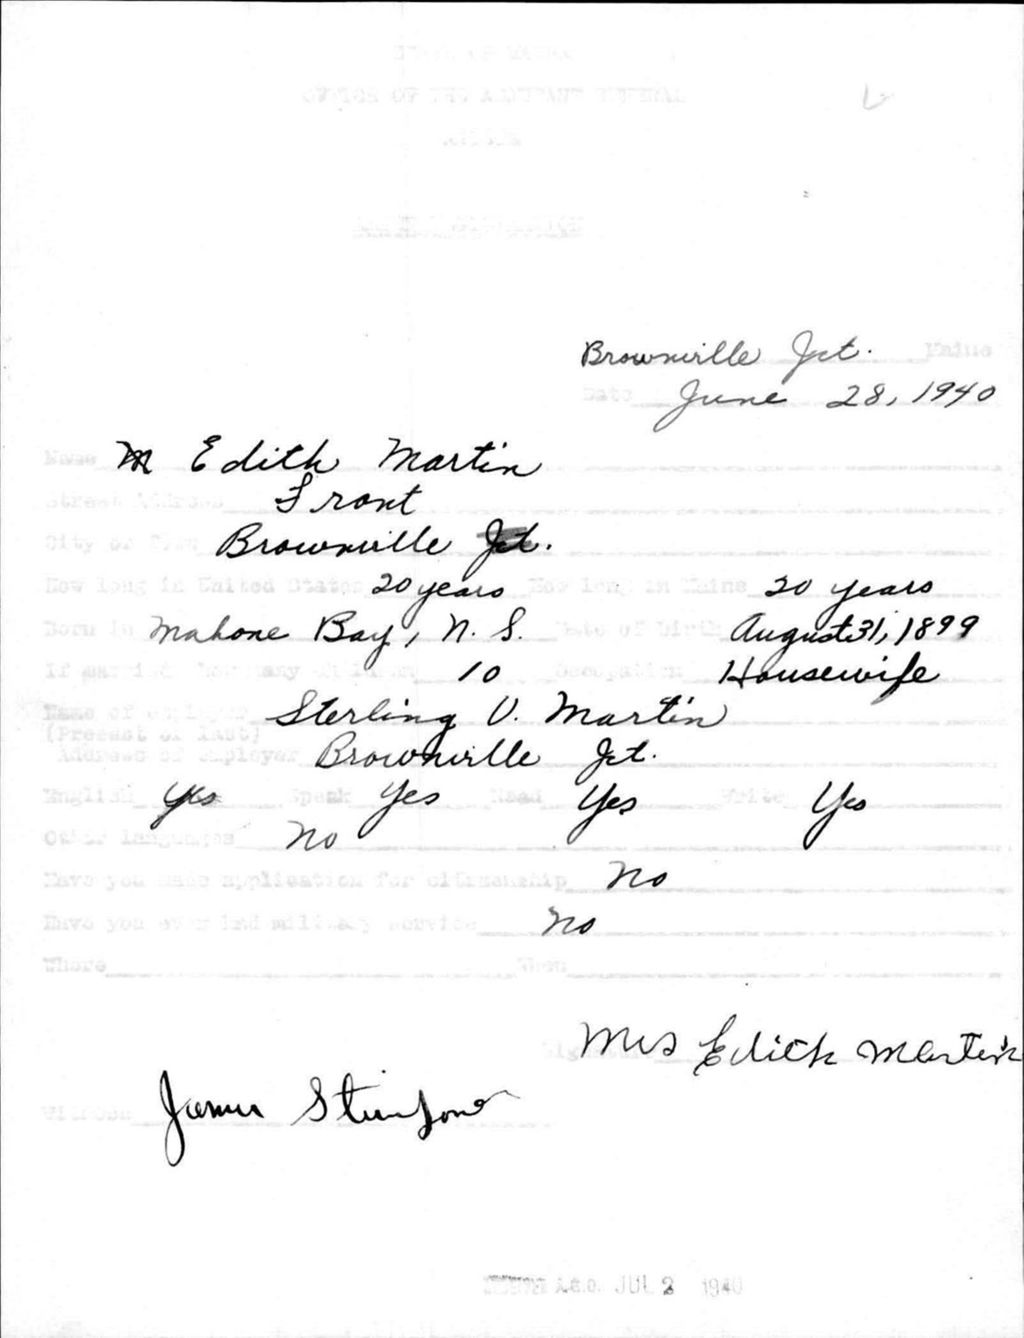 STATE OF MAINE
OFFICE OF THE ADJUTANT GENERAL
AUGUSTA
ALIEN REGISTRATION
Brownville Jct. Maine
Date June 28, 1940
Name Edith Martin
Street Address Front
City or Town Brownville Jct.
How long in United States 20 years How long in Maine 20 years
Born in Mahone Bay, N. S. Date of birth August 31, 1899
If married, how many children 10 Occupation Housewife
Name of employer Sterling V. Martin
(Present or last)
Address of employer Brownville Jct.
English Yes Speak Yes Read Yes Write Yes
Other languages No
Have you made application for citizenship No
Have you ever had military service No
Where When
Signature Mrs Edith Martin
Witness James Stinson
A.G.O. JUL 2 1940